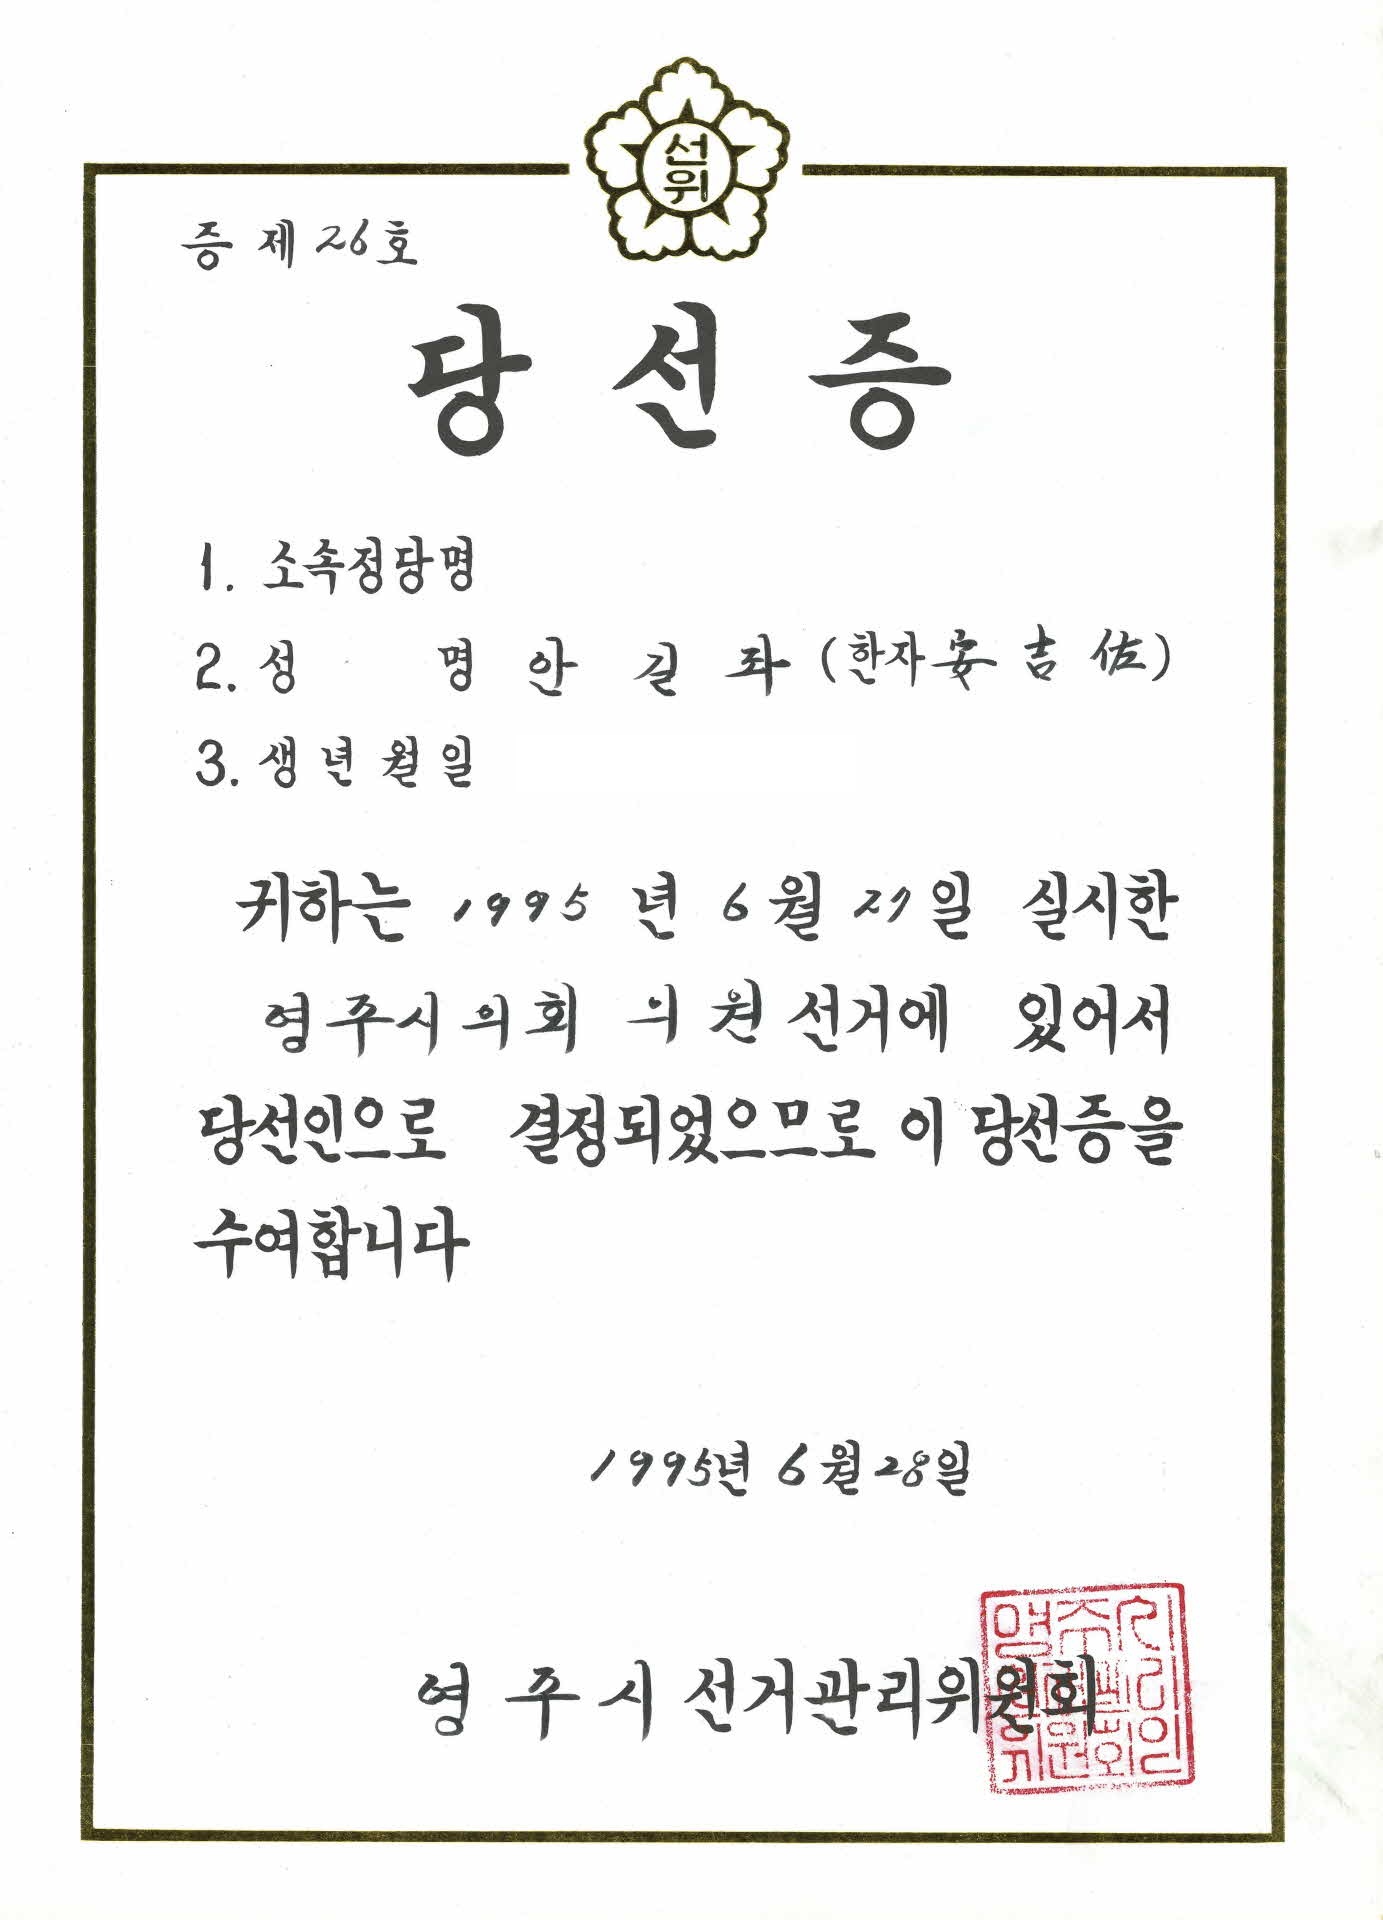 선위
증 제 26 호
당 선 증
1. 소속정당명
2. 성 명 안 길 좌 (한자 安 吉 佐)
3. 생년월일
귀하는 1995 년 6 월 27 일 실시한
영주시의회 의원선거에 있어서
당선인으로 결정되었으므로 이 당선증을
수여합니다
1995년 6월 28일
영 주 시 선거관리위원회